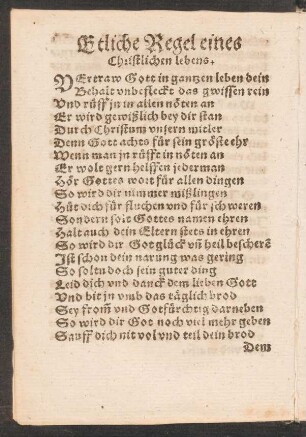 Etliche Regel eines
Christlichen lebens.
VErtraw Gott in gantzen leben dein
Behalt vnbefleckt das gwissen rein
Vnd rüff jn in allen nöten an
Er wird gewißlich bey dir stan
Durch Christum vnsern mitler
Denn Gott achts für sein gröste ehr
Wenn man jn rüfft in nöten an
Er wolt gern helffen jederman
Hör Gottes wort für allen dingen
So wird dir nimmer mißlingen
Hüt dich für fluchen vnd für schweren
Sondern solt Gottes namen ehren
Halt auch dein Eltern stets in ehren
So wird dir Got glück vñ heil bescherẽ
Ist schon dein narung was gering
So soltu doch sein guter ding
Leid dich vnd danck dem lieben Gott
Vnd bit jn vmb das täglich brod
Sey from̃ vnd Gotfürchtig darneben
So wird dir Got noch viel mehr geben
Sauff dich nit vol vnd teil dein brod
Dem